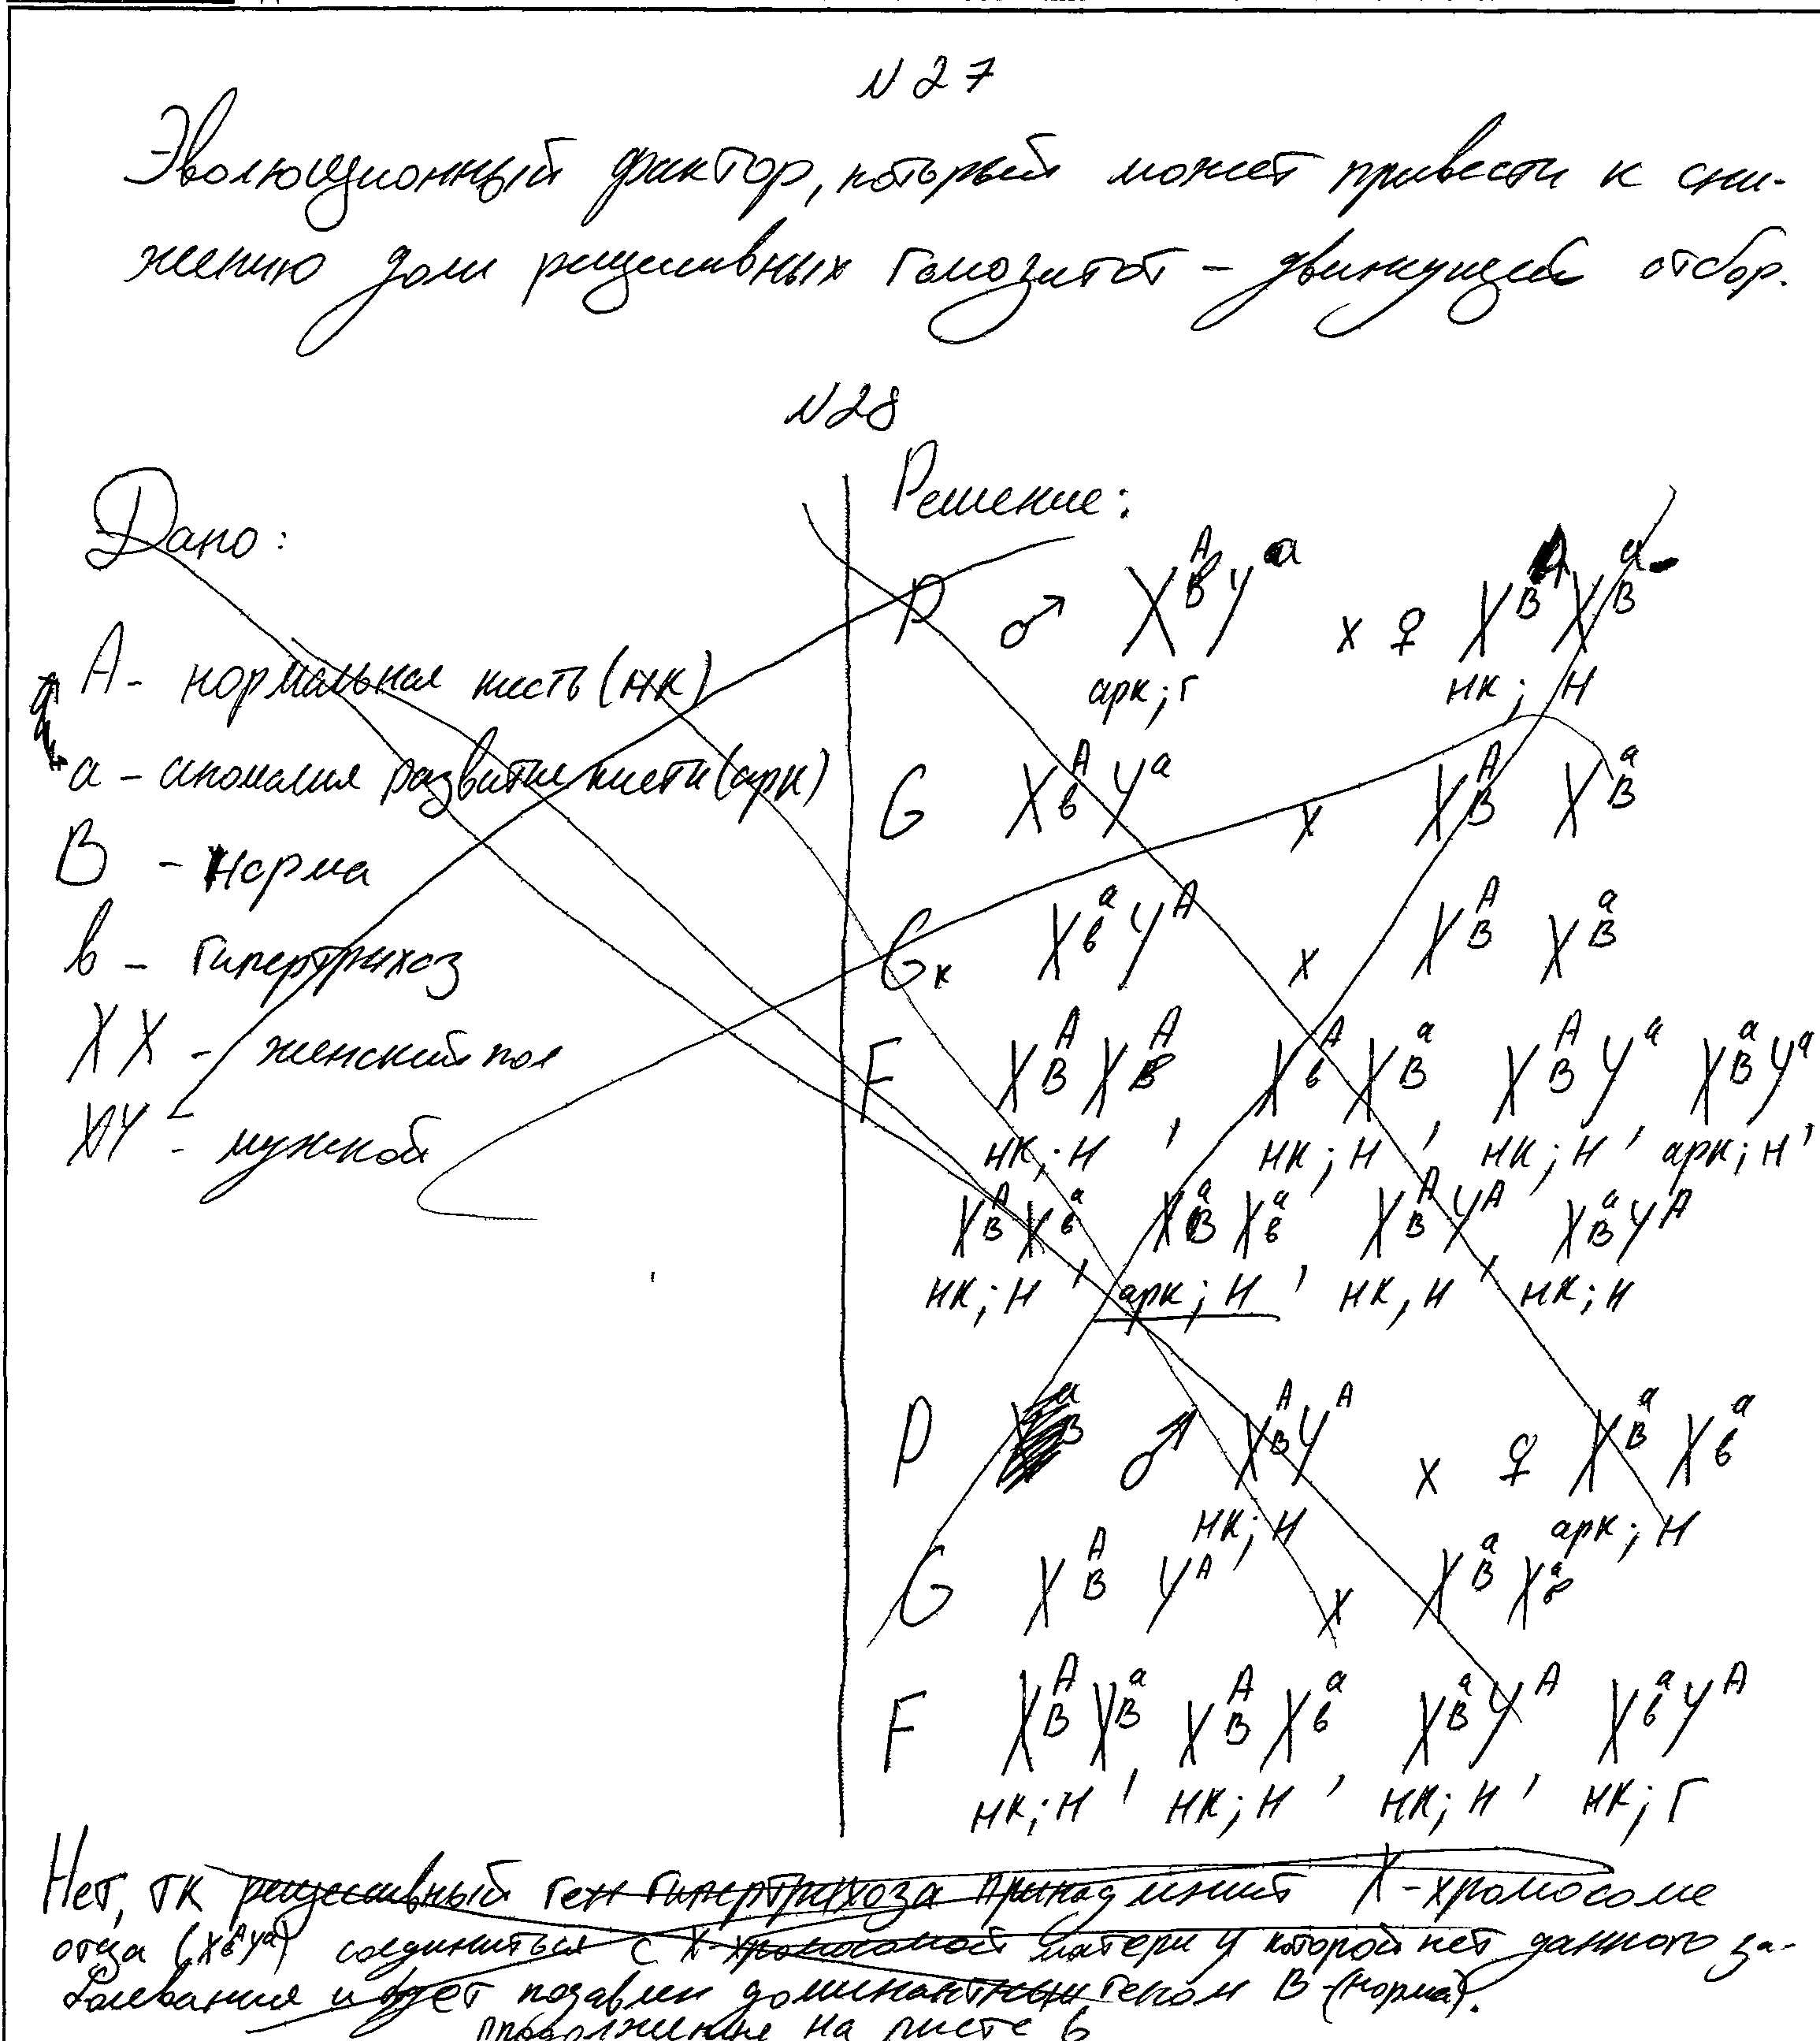 N 27
Эволюционный фактор, который может привести к сни-
жению доли рецессивных гомозигот – движущий отбор.
N28
Дано:
Решение:
A - нормальная кисть (нк)
a - аномалия развития кисти (арк)
B - Норма
в - гипертрихоз
XX - женский пол
XY - мужской
P ♂ X^A_в Y^a x ♀ X^A_B X^a_B
арк; г нк; н
G X^A_в Y^a x X^A_B X^a_B
Gк X^a_в Y^A x X^A_B X^a_B
F X^A_B X^A_в X^A_в X^a_B X^A_B Y^a X^a_B Y^a
нк; н, нк; н, нк; н, арк; н,
X^A_B X^a_в X^a_B X^a_в X^A_B Y^A X^a_B Y^A
нк; н, арк; н, нк, н, нк; н
P ♂ X^A_B Y^A x ♀ X^a_B X^a_в
нк; н арк; н
G X^A_B Y^A x X^a_B X^a_в
F X^A_B X^a_B X^A_B X^a_в X^a_B Y^A X^a_в Y^A
нк; н, нк; н, нк; н, нк; г
Нет, тк рецессивный ген гипертрихоза принадлежит X-хромосоме
отца (X^A_в Y^a) соединиться с X-хромосомой матери у которой нет данного за-
болевания и будет подавлен доминантным геном B-(норма).
продолжение на листе 6